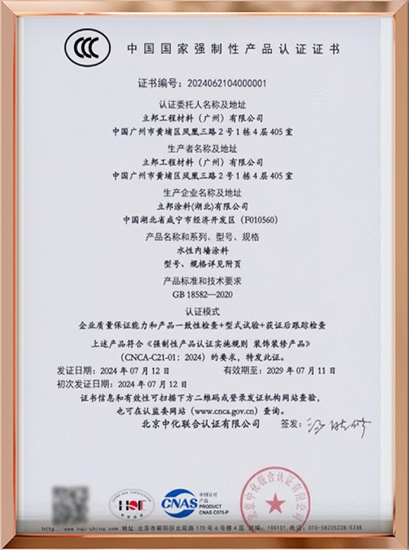 中国国家强制性产品认证证书
证书编号：2024062104000001
认证委托人名称及地址
立邦工程材料（广州）有限公司
中国广州市黄埔区凤凰三路2号1栋4层405室
生产者名称及地址
立邦工程材料（广州）有限公司
中国广州市黄埔区凤凰三路2号1栋4层405室
生产企业名称及地址
立邦涂料(湖北)有限公司
中国湖北省咸宁市经济开发区（F010560）
产品名称和系列、型号、规格
水性内墙涂料
型号、规格详见附页
产品标准和技术要求
GB 18582—2020
认证模式
企业质量保证能力和产品一致性检查+型式试验+获证后跟踪检查
上述产品符合《强制性产品认证实施规则 装饰装修产品》
(CNCA-C21-01：2024）的要求，特发此证。
发证日期：2024年07月12日 有效期至：2029年07月11日
初次发证日期：2024年07月12日
证书信息和有效性可扫描下方二维码或登录发证机构网站查验，
也可在认监委网站（www.cnca.gov.cn）查询。
北京中化联合认证有限公司 签发：
HQC
CNAS 中国认可
产品
PRODUCT
CNAS C075-P
北京中化联合认证有限公司
www.hqc-china.com 地址：北京市朝阳区北苑路170号6号楼4层 邮编：100101 电话：010-58235228/5338